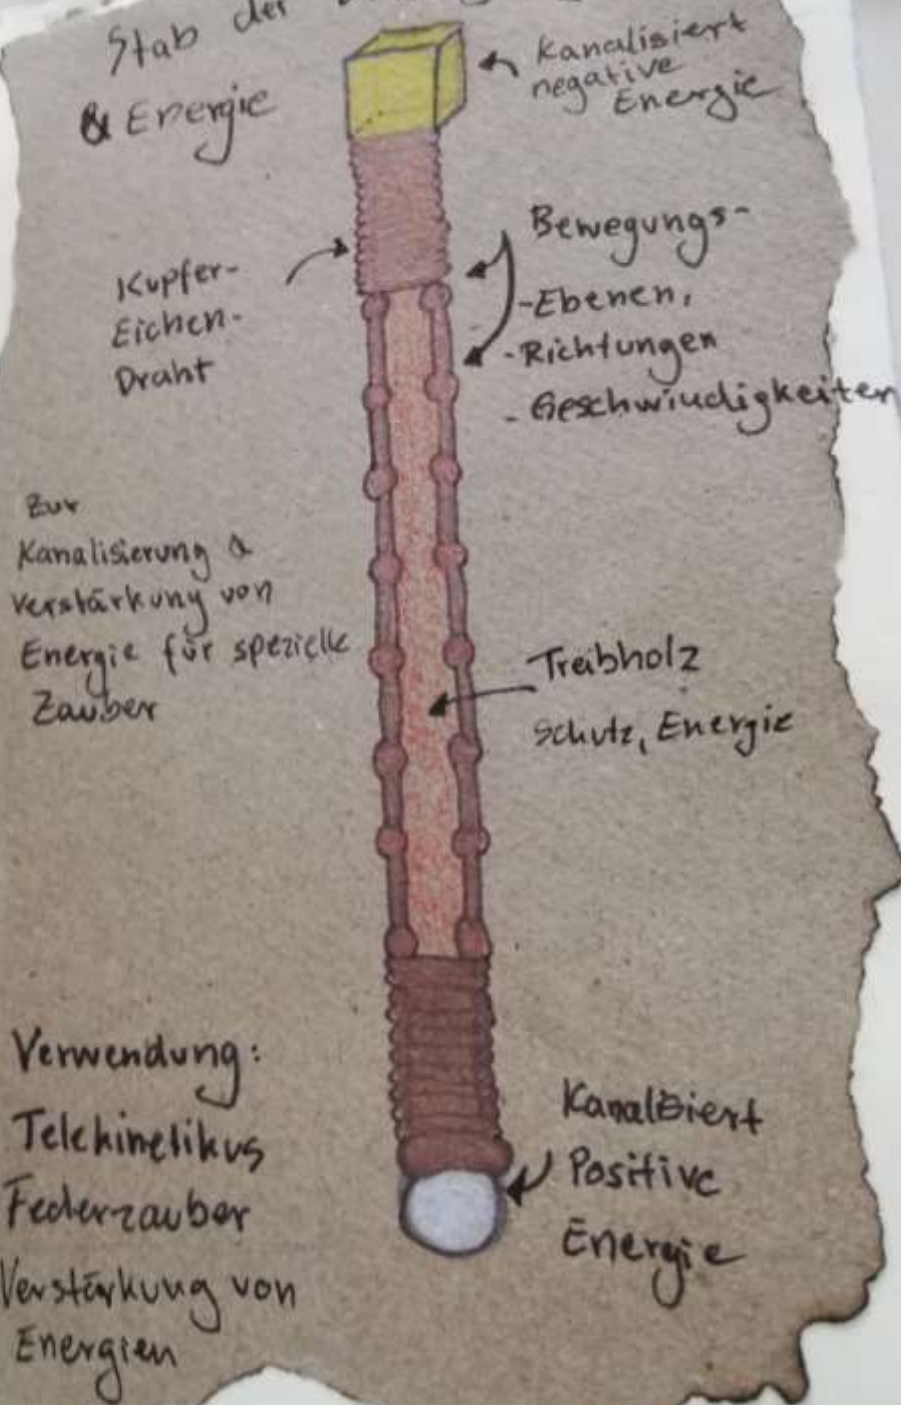 Stab der
& Energie
Kanalisiert
negative
Energie
Kupfer-
Eichen-
Draht
Bewegungs-
-Ebenen,
-Richtungen
- Geschwindigkeiten
Zur
Kanalisierung &
Verstärkung von
Energie für spezielle
Zauber
Treibholz
Schutz, Energie
Verwendung:
Telekinetikus
Federzauber
Verstärkung von
Energien
Kanalisiert
Positive
Energie